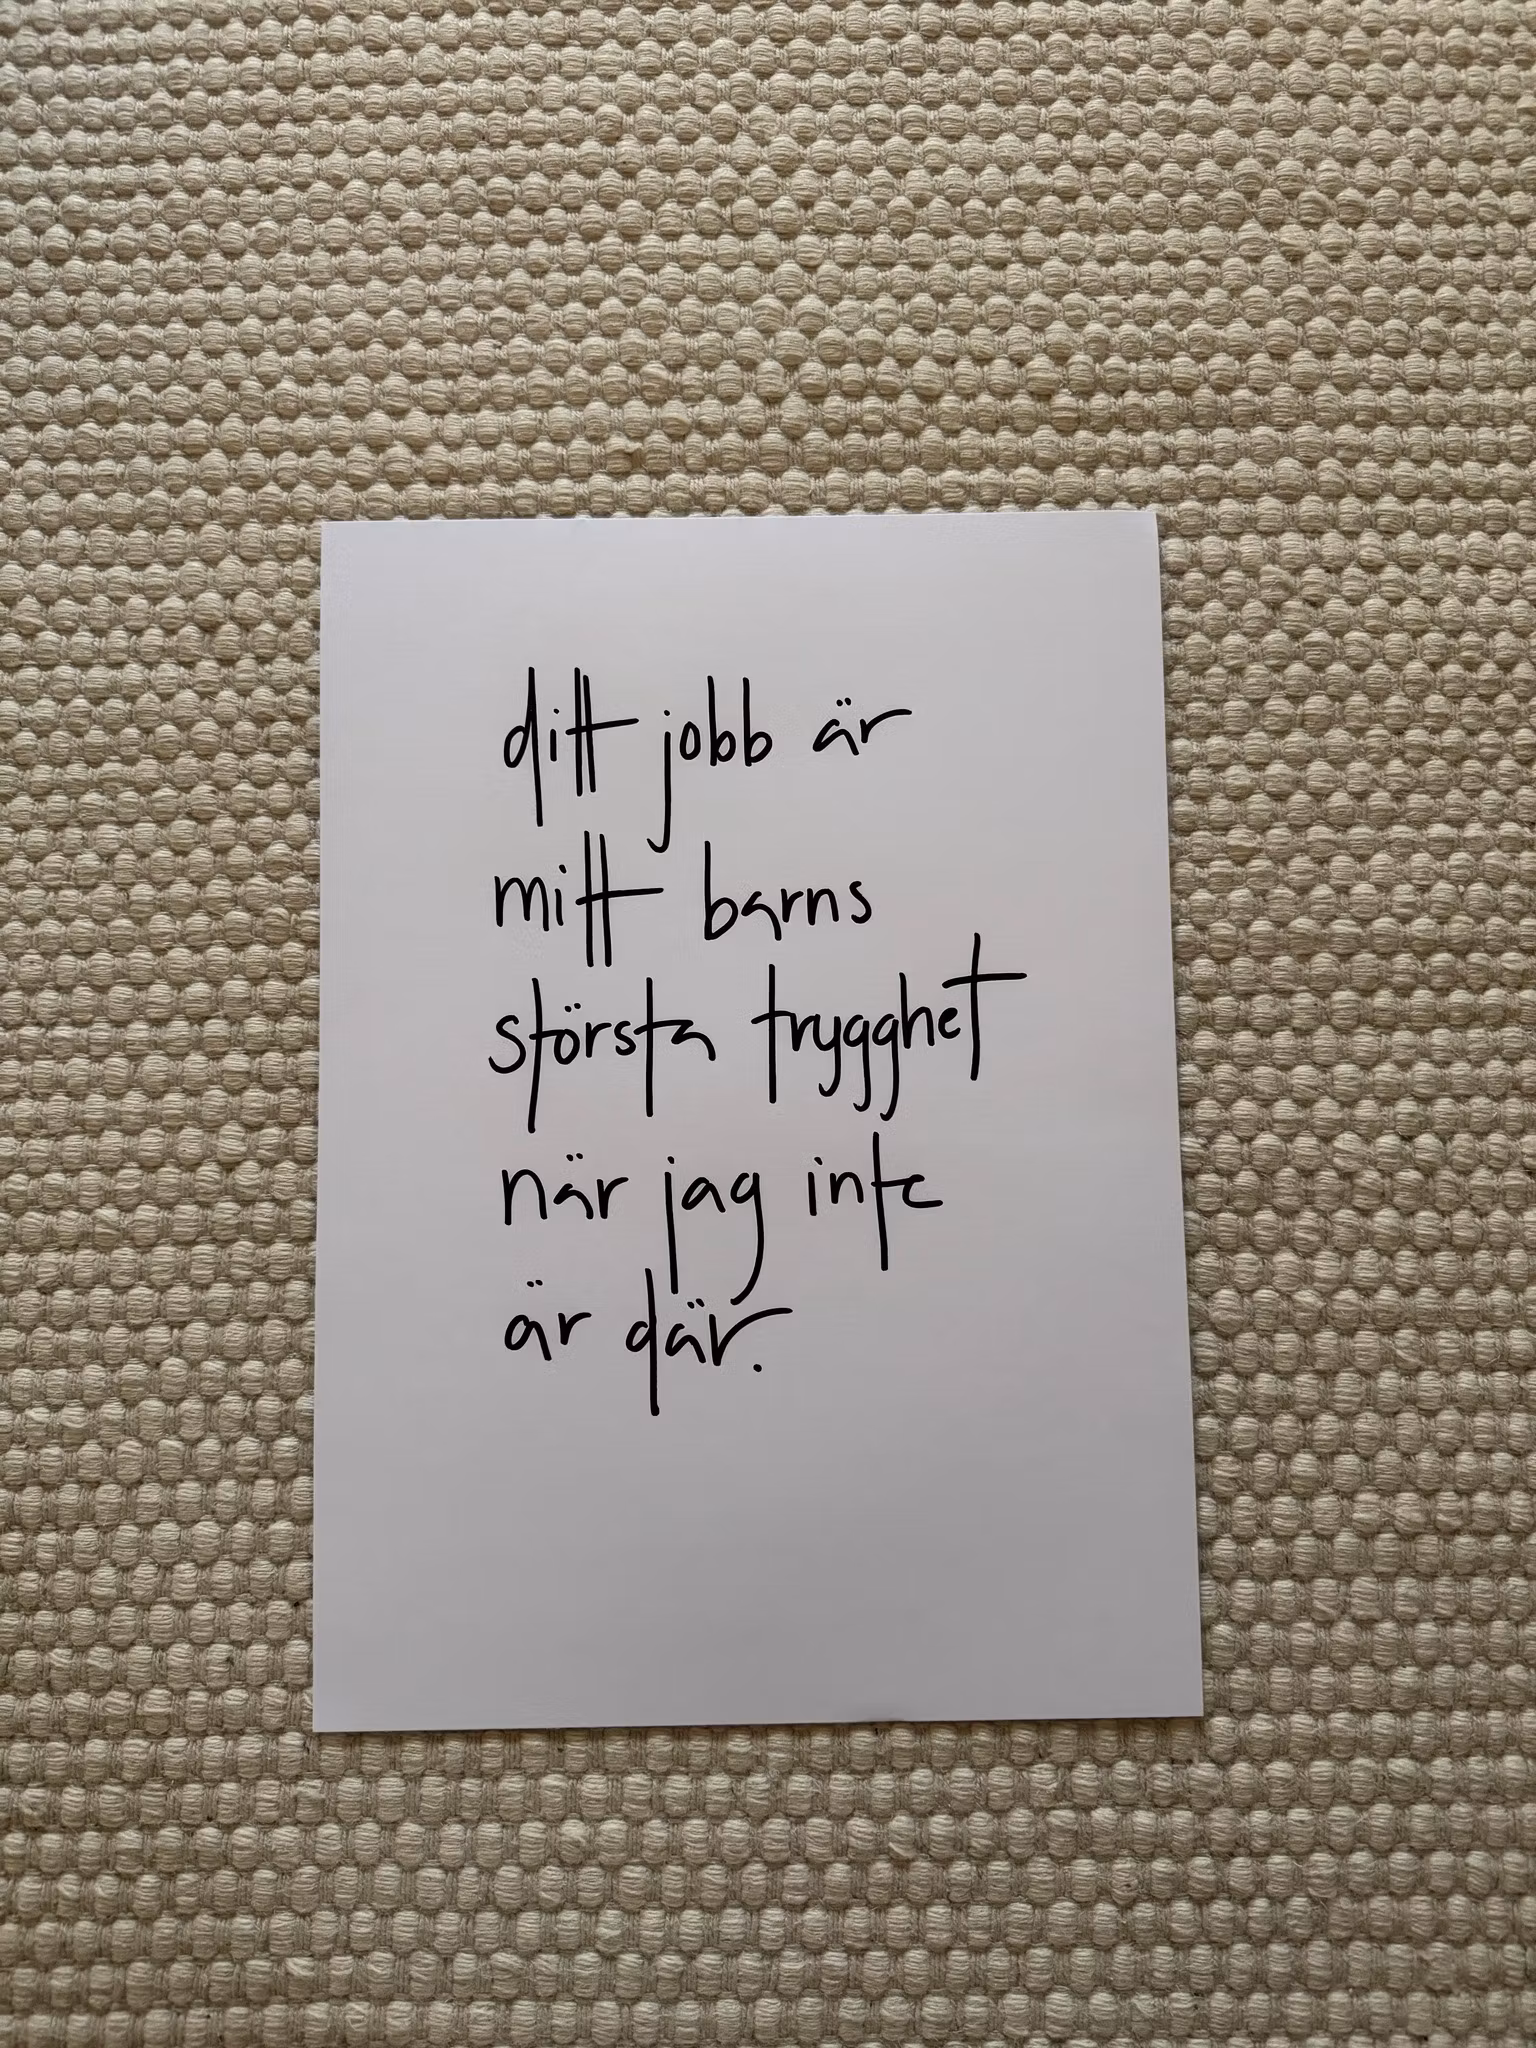 ditt jobb är
mitt barns
största trygghet
när jag inte
är där.